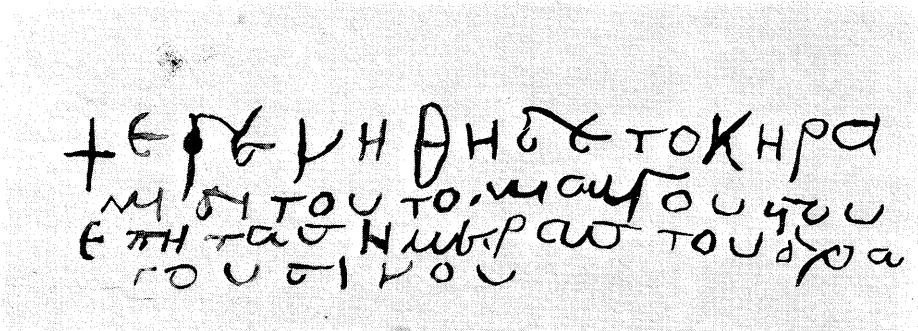 + εγενηθη δε το κηρα
μηδη τουτο. μη αυγουστου
επη τας ημερας του δρα
γουσινου